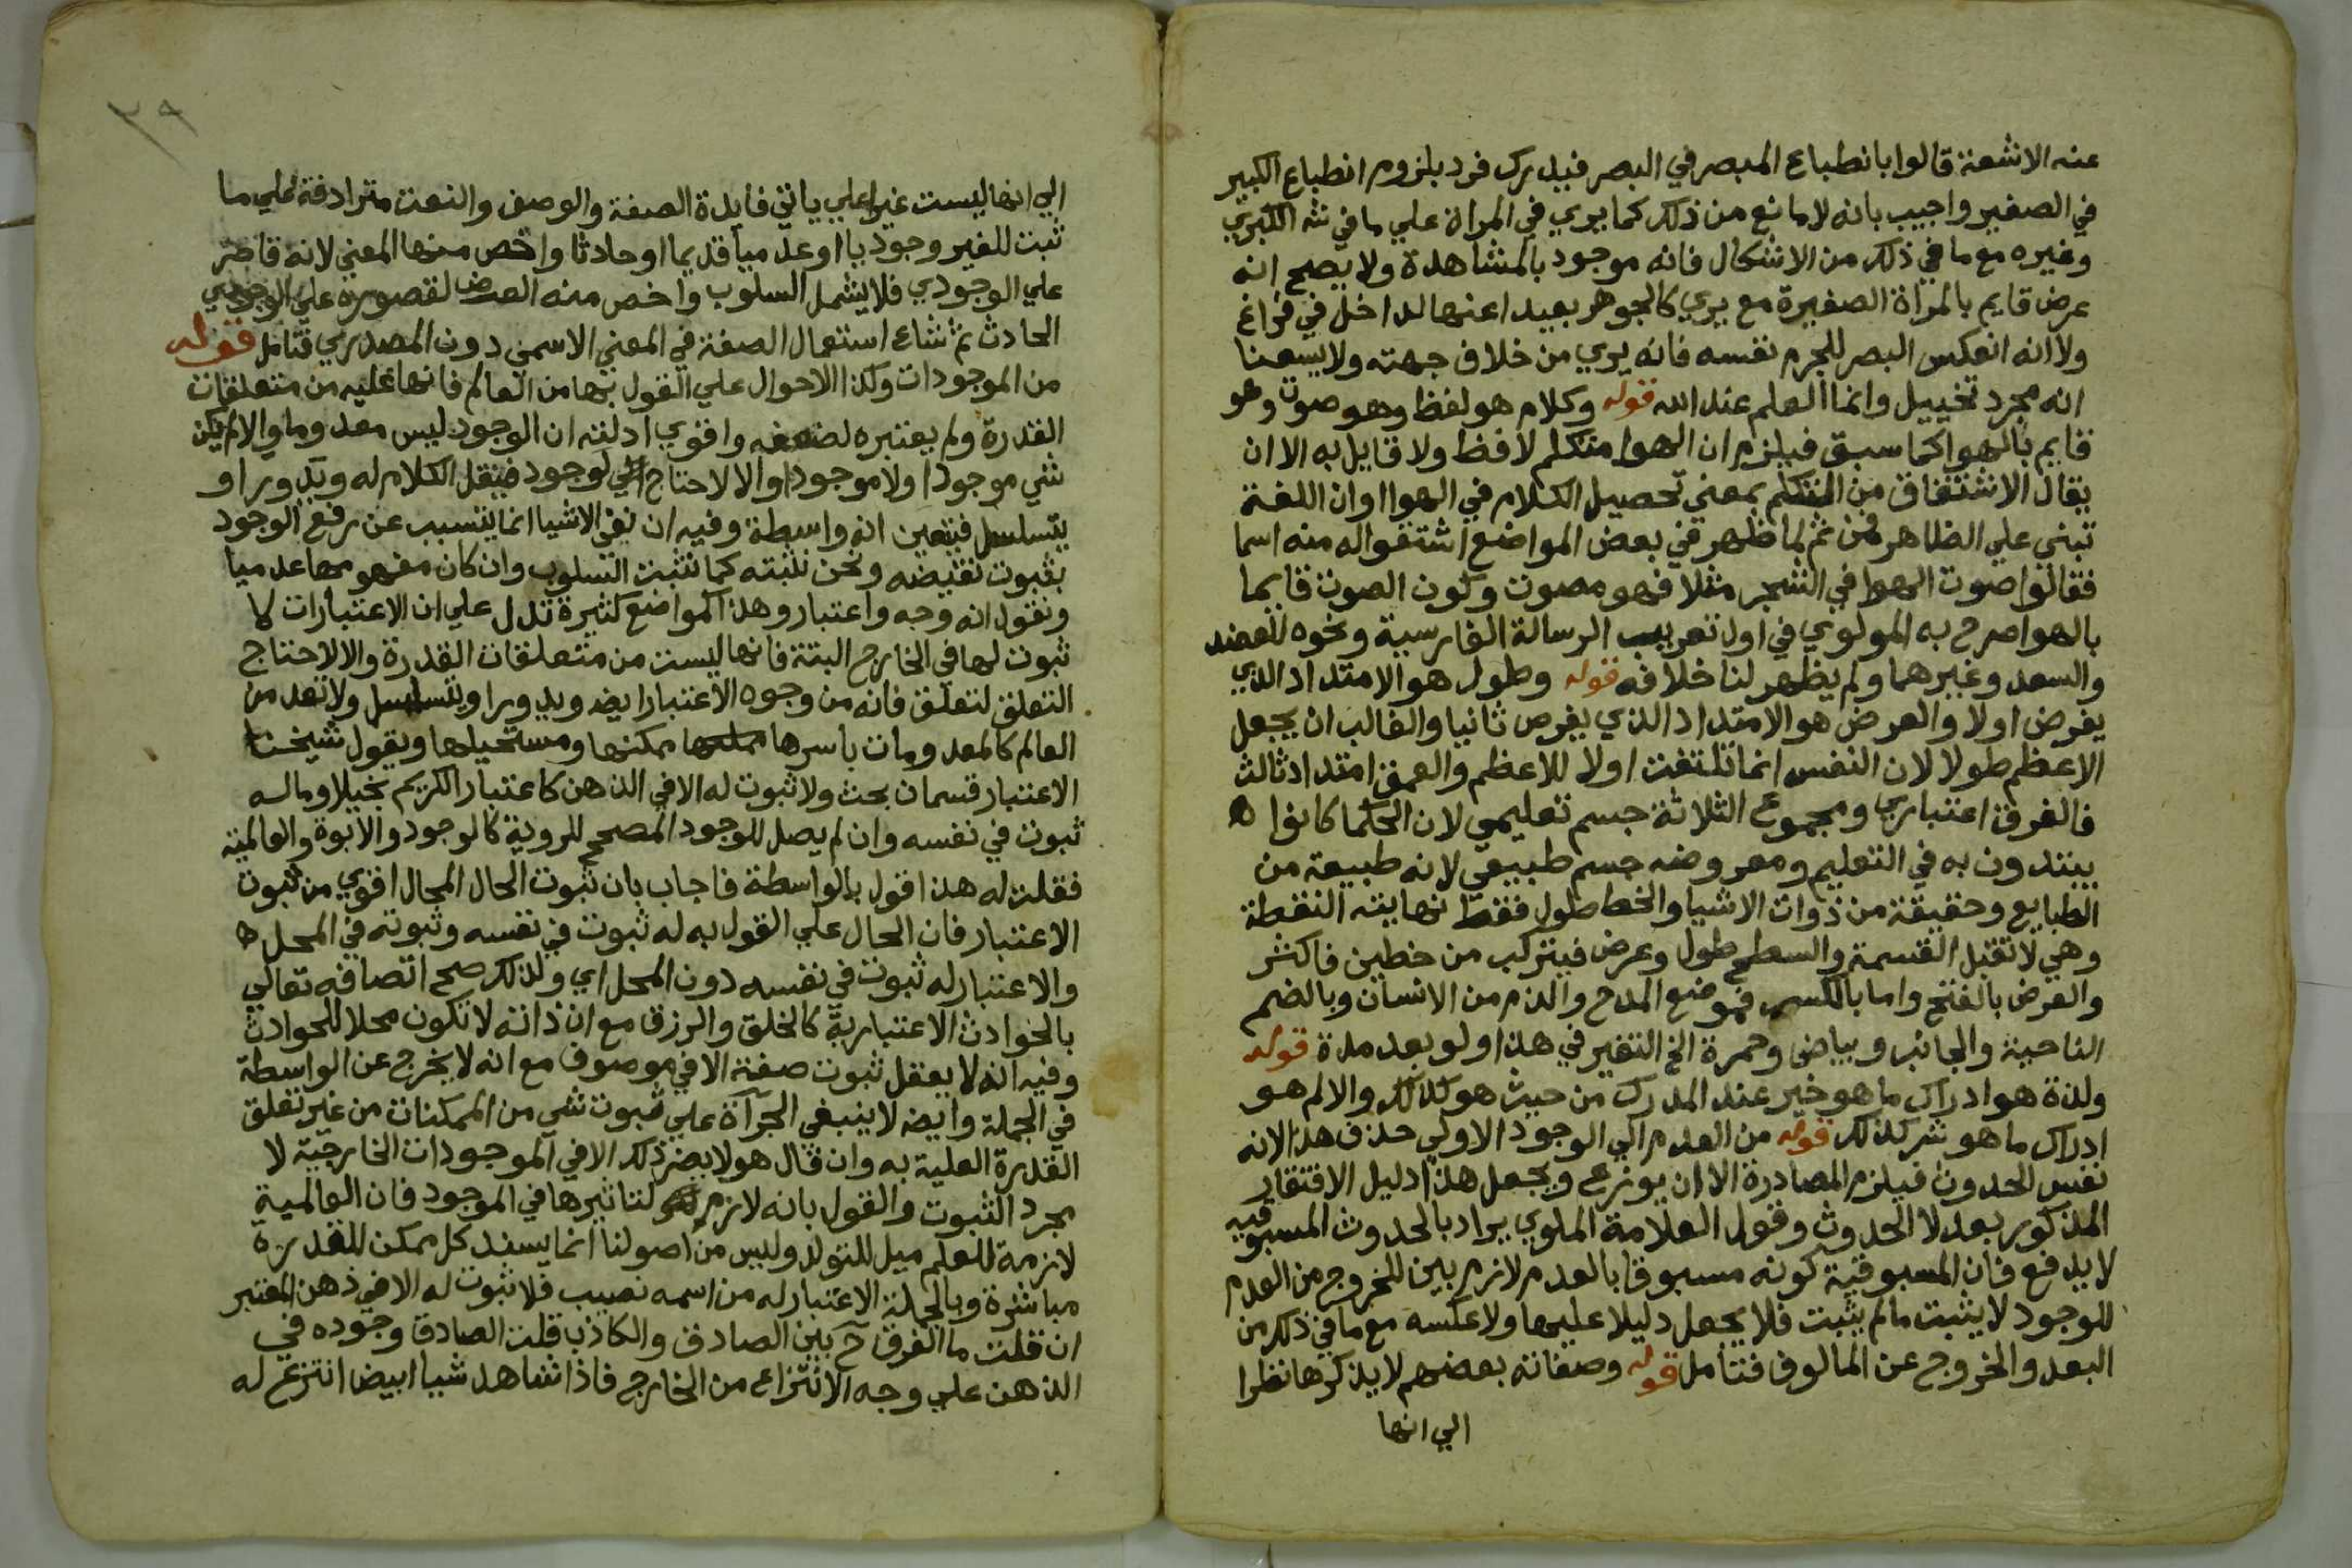 عنه الاشعة قالوا بانطباع المبصر في البصر فيدرك فرد بلزوم انطباع الكبير
في الصغير واجيب بانه لا مانع من ذلك كما يري في المراة علي ما في الكبري
وغيره مع ما في ذلك من الاشكال فانه موجود بالمشاهدة ولا يصح انه
عرض قايم بالمراة الصغيرة مع يري كالجوهر بعيدا عنها لداخل في فراغ
ولا انه انعكس البصر للجرم نفسه فانه يري من خلاف جهته ولا يسعنا
انه مجرد تخييل وانما العلم عند الله قوله وكلام هو لفظ وهو صوت وهو
قايم بالهوا كما سبق فيلزم ان الهوا متكلم لافظ ولا قايل به الا ان
يقال الاشتقاق من التكلم بمعني تحصيل الكلام في الهوا او ان اللغة
تبني علي الظاهر فمن ثم لما ظهر في بعض المواضع اشتقوا له منه اسما
فقالوا صوت الهوا في الشجر مثلا فهو مصوت وكون الصوت قايما
بالهوا صرح به المولوي في اول تعريب الرسالة الفارسية ونحوه للعضد
والسعد وغيرهما ولم يظهر لنا خلافه قوله وطول هو الامتداد الذي
يفرض اولا والعرض هو الامتداد الذي يفرض ثانيا والغالب ان يجعل
الاعظم طولا لان النفس انما تلتفت اولا للاعظم والعمق امتداد ثالث
فالفرق اعتباري ومجموع الثلاثة جسم تعليمي لان الحكما كانوا
يبتدون به في التعليم ومعروضه جسم طبيعي لانه طبيعة من
الطبايع وحقيقة من ذوات الاشيا والخط طول فقط نهايته النقطة
وهي لا تقبل القسمة والسطح طول وعرض فيتركب من خطين فاكثر
والعرض بالفتح واما بالكسر فموضع المدح والذم من الانسان وبالضم
الناحية والجانب وبياض وحمرة الخ التغير في هذا ولو بعد مدة قوله
ولذة هو ادراك ما هو خير عند المدرك من حيث هو كذلك والالم هو
ادراك ما هو شر كذلك قوله من العدم الي الوجود الاولي حذف هذا لانه
نفس الحدوث فيلزم المصادرة الا ان يوزع ويجعل هذا دليل الافتقار
المذكور بعد لا الحدوث وقول العلامة الملوي يراد بالحدوث المسبوقيه
لا يدفع فان المسبوقية كونه مسبوقا بالعدم لازم بين للخروج من العدم
للوجود لا يثبت ما لم يثبت فلا يجعل دليلا عليها ولا عكسه مع ما في ذلك من
البعد والخروج عن المالوف فتامل قوله وصفاته بعضهم لا يذكرها نظرا
الي انها
٣٩
الي انها ليست غيرا علي ياتي فايدة الصفة والوصف والنعت مترادفة علي ما
ثبت للغير وجوديا او عدميا قديما او حادثا واخص منها المعني لانه قاصر
علي الوجودي فلا يشمل السلوب واخص منه العرض لقصوره علي الوجودي
الحادث ثم شاع استعمال الصفة في المعني الاسمي دون المصدري فتامل قوله
من الموجودات وكذا الاحوال علي القول بها من العالم فانها عليه من متعلقات
القدرة ولم يعتبره لضعفه واقوي ادلته ان الوجود ليس معدوما والا لم يكن
شي موجودا ولا موجودا والا لاحتاج الي لوجود فينقل الكلام له ويدور او
يتسلسل فيتعين انه واسطة وفيه ان نفي الاشيا انما يتسبب عن رفع الوجود
بثبوت نقيضه ونحن نثبته كما نثبت السلوب وان كان مفهومها عدميا
ونقول انه وجه واعتبار وهذا كمواضع كثيرة تدل علي ان الاعتبارات لا
ثبوت لها في الخارج البتة فانها ليست من متعلقات القدرة والا لاحتاج
التعلق لتعلق فانه من وجوه الاعتبار ايضا ويدور او يتسلسل ولا تعد من
العالم كالمعدومات باسرها ممكنها ومستحيلها ويقول شيخنا
الاعتبار قسمان بحث ولا ثبوت له الا في الذهن كاعتبار الكريم بخيلا وما له
ثبوت في نفسه وان لم يصل للوجود المصحح للروية كالوجود والابوة والعالمية
فقلت له هذا قول بالواسطة فاجاب بان ثبوت الحال المحال اقوي من ثبوت
الاعتبار فان الحال علي القول به له ثبوت في نفسه وثبوته في المحل
والاعتبار له ثبوت في نفسه دون المحل اي ولذلك صح اتصافه تعالي
بالحوادث الاعتبارية كالخلق والرزق مع ان ذاته لا تكون محلا للحوادث
وفيه انه لا يعقل ثبوت صفة الا في موصوف مع انه لا يخرج عن الواسطة
في الجملة وايضا لا ينبغي الجرآة علي ثبوت شي من الممكنات من غير تعلق
القدرة العلية به وان قال هو لا يضر ذلك الا في الموجودات الخارجية لا
مجرد الثبوت والقول بانه لازم لتاثيرها في الموجود فان العالمية
لازمة للعلم ميل للتولد وليس من اصولنا انما يسند كل ممكن للقدرة
مباشرة وبالجملة الاعتبار له من اسمه نصيب فلا ثبوت له الا في ذهن المعتبر
ان قلت ما الفرق ح بين الصادق والكاذب قلت الصادق وجوده في
الذهن علي وجه الانتزاع من الخارج فاذا شاهد شيا ابيض انتزع له